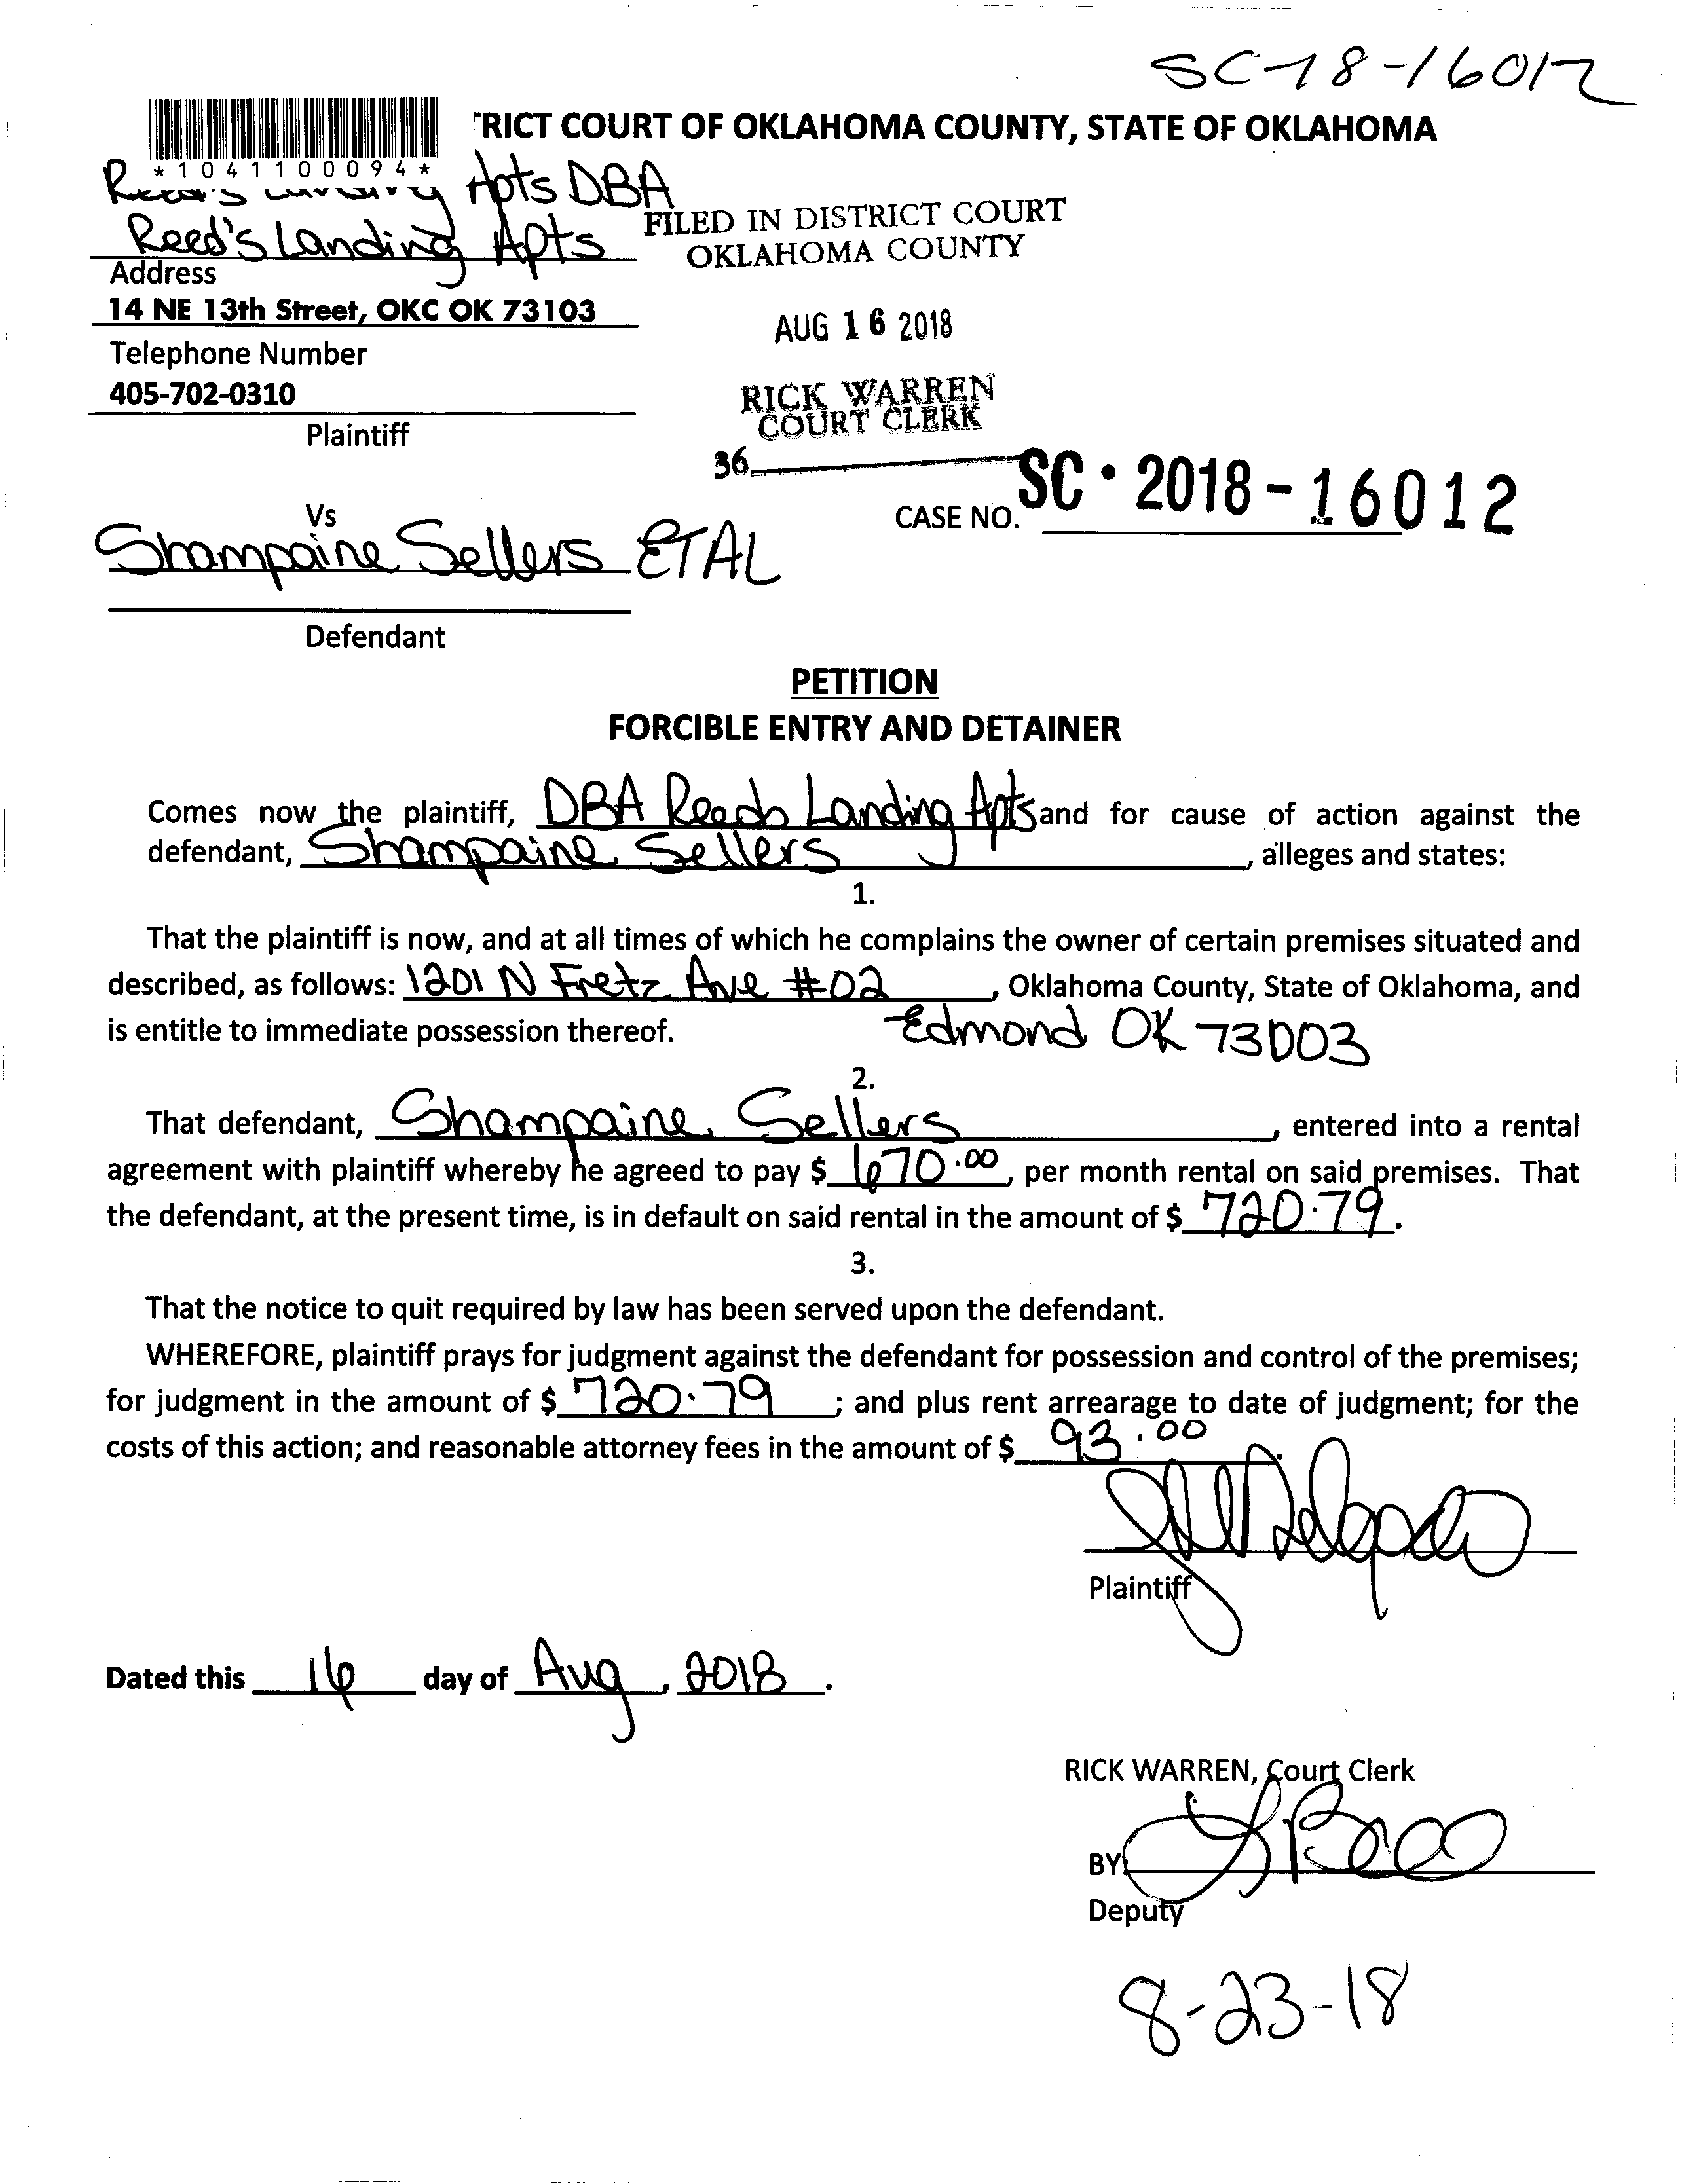 SC-18-16012
*1041100094*
RICT COURT OF OKLAHOMA COUNTY, STATE OF OKLAHOMA
Reed's Landing Apts DBA
Reed's Landing Apts
FILED IN DISTRICT COURT
OKLAHOMA COUNTY
Address
14 NE 13th Street, OKC OK 73103
AUG 16 2018
Telephone Number
405-702-0310
RICK WARREN
COURT CLERK
Plaintiff
36
SC·2018-16012
CASE NO.
Vs
Shampaine Sellers ETAL
Defendant
PETITION
FORCIBLE ENTRY AND DETAINER
Comes now the plaintiff, DBA Reeds Landing Apts and for cause of action against the
defendant, Shampaine Sellers, alleges and states:
1.
That the plaintiff is now, and at all times of which he complains the owner of certain premises situated and
described, as follows: 1201 N Fretz Ave #02, Oklahoma County, State of Oklahoma, and
is entitle to immediate possession thereof. Edmond OK 73003
2.
That defendant, Shampaine Sellers, entered into a rental
agreement with plaintiff whereby he agreed to pay $ 670.00, per month rental on said premises. That
the defendant, at the present time, is in default on said rental in the amount of $ 720.79.
3.
That the notice to quit required by law has been served upon the defendant.
WHEREFORE, plaintiff prays for judgment against the defendant for possession and control of the premises;
for judgment in the amount of $ 720.79; and plus rent arrearage to date of judgment; for the
costs of this action; and reasonable attorney fees in the amount of $ 93.00.
Plaintiff
Dated this 16 day of Aug, 2018.
RICK WARREN, Court Clerk
BY:
Deputy
8-23-18